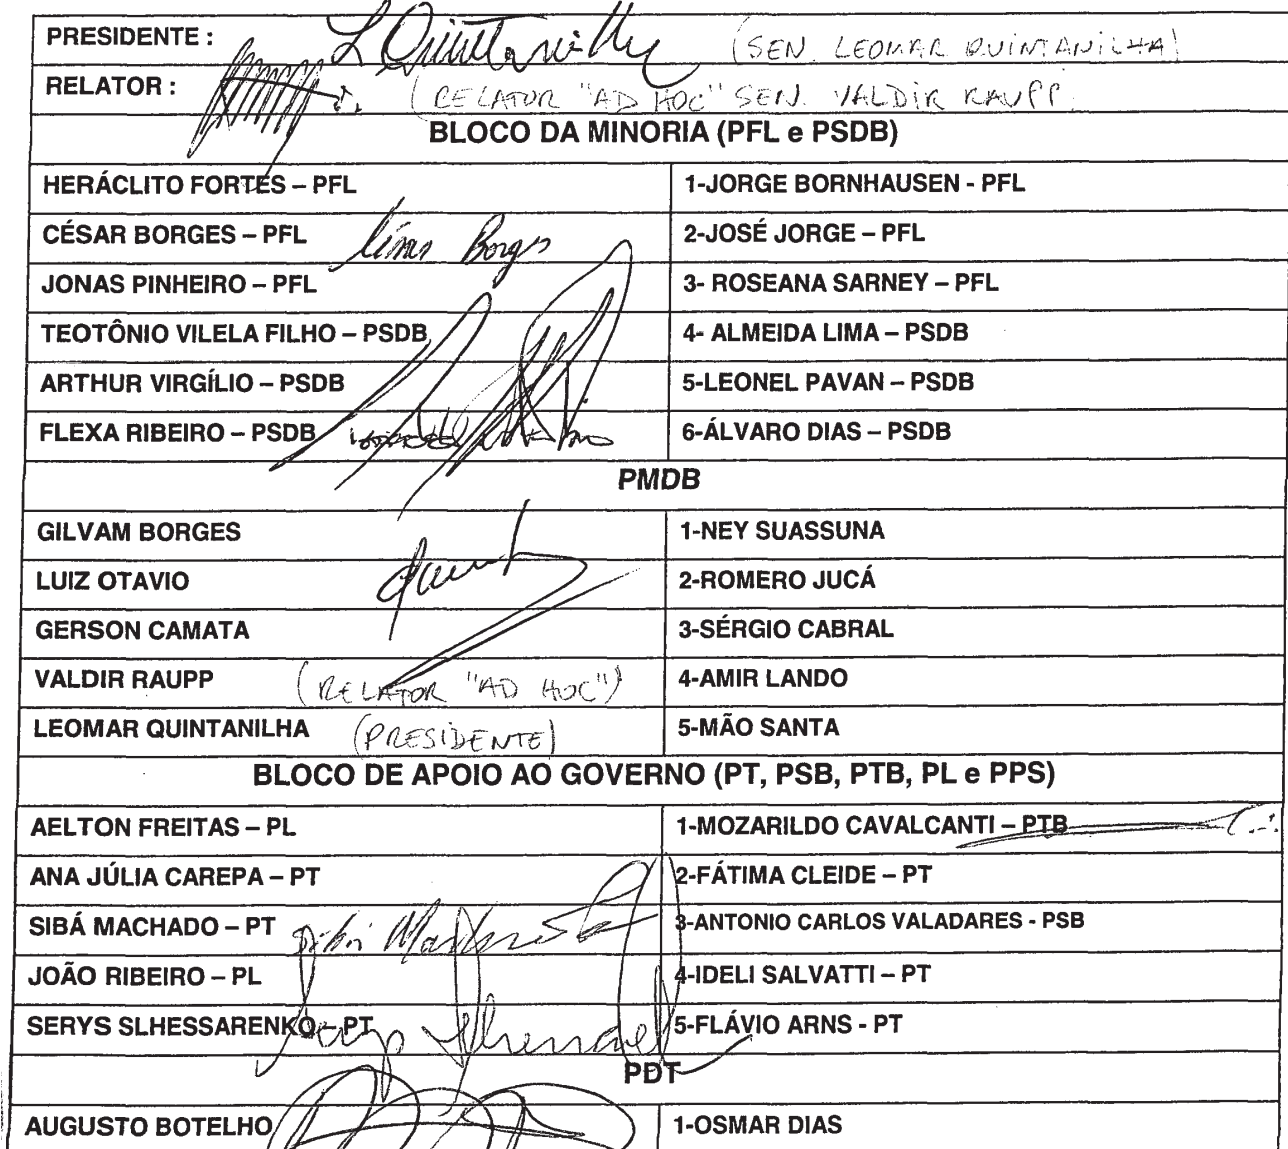 PRESIDENTE : L Quintanilha (SEN. LEOMAR QUINTANILHA)
RELATOR : (RELATOR "AD HOC" SEN. VALDIR RAUPP.
BLOCO DA MINORIA (PFL e PSDB)
HERÁCLITO FORTES – PFL 1-JORGE BORNHAUSEN - PFL
CÉSAR BORGES – PFL César Borges 2-JOSÉ JORGE – PFL
JONAS PINHEIRO – PFL 3- ROSEANA SARNEY – PFL
TEOTÔNIO VILELA FILHO – PSDB 4- ALMEIDA LIMA – PSDB
ARTHUR VIRGÍLIO – PSDB 5-LEONEL PAVAN – PSDB
FLEXA RIBEIRO – PSDB 6-ÁLVARO DIAS – PSDB
PMDB
GILVAM BORGES 1-NEY SUASSUNA
LUIZ OTAVIO 2-ROMERO JUCÁ
GERSON CAMATA 3-SÉRGIO CABRAL
VALDIR RAUPP (RELATOR "AD HOC") 4-AMIR LANDO
LEOMAR QUINTANILHA (PRESIDENTE) 5-MÃO SANTA
BLOCO DE APOIO AO GOVERNO (PT, PSB, PTB, PL e PPS)
AELTON FREITAS – PL 1-MOZARILDO CAVALCANTI – PTB
ANA JÚLIA CAREPA – PT 2-FÁTIMA CLEIDE – PT
SIBÁ MACHADO – PT Sibá Machado 3-ANTONIO CARLOS VALADARES - PSB
JOÃO RIBEIRO – PL 4-IDELI SALVATTI – PT
SERYS SLHESSARENKO – PT 5-FLÁVIO ARNS - PT
PDT
AUGUSTO BOTELHO 1-OSMAR DIAS